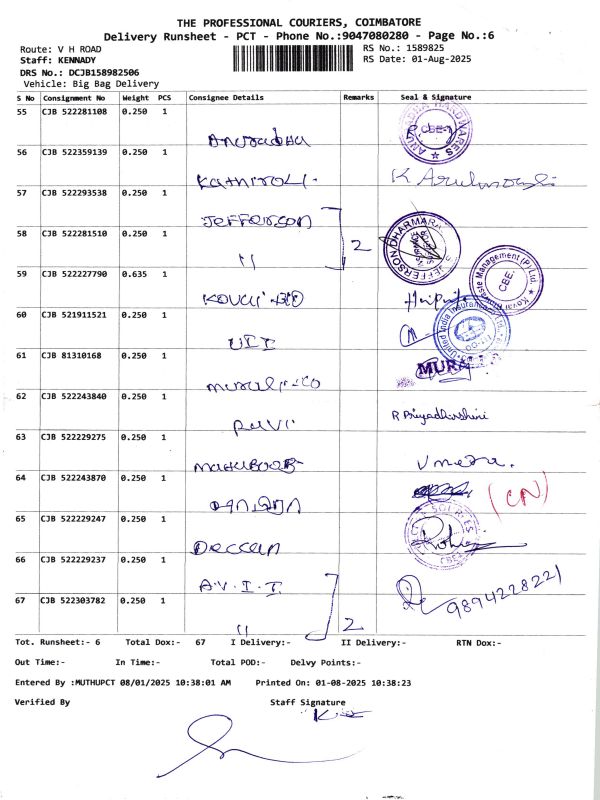 THE PROFESSIONAL COURIERS, COIMBATORE
Delivery Runsheet - PCT - Phone No.:9047080280 - Page No.:6
Route: V H ROAD
RS No.: 1589825
Staff: KENNADY
RS Date: 01-Aug-2025
DRS No.: DCJB158982506
Vehicle: Big Bag Delivery
S No Consignment No Weight PCS Consignee Details Remarks Seal & Signature
55 CJB 522281108 0.250 1
Anuradha
ANURADHA HARDWARES CBE-1
56 CJB 522359139 0.250 1
Kathiroli.
57 CJB 522293538 0.250 1
Jefferson
58 CJB 522281510 0.250 1
11 2
59 CJB 522227790 0.635 1
Kovai
CBE.
60 CJB 521911521 0.250 1
UII
United India Insurance
61 CJB 81310168 0.250 1
Murali-co
62 CJB 522243840 0.250 1
Ravi
R Priyadharshini
63 CJB 522229275 0.250 1
Mahuboob
64 CJB 522243870 0.250 1
(CN)
65 CJB 522229247 0.250 1
Deccan
66 CJB 522229237 0.250 1
A.V.I.I
9894228221
67 CJB 522303782 0.250 1
11 2
Tot. Runsheet:- 6 Total Dox:- 67 I Delivery:- II Delivery:- RTN Dox:-
Out Time:- In Time:- Total POD:- Delvy Points:-
Entered By :MUTHUPCT 08/01/2025 10:38:01 AM Printed On: 01-08-2025 10:38:23
Verified By Staff Signature